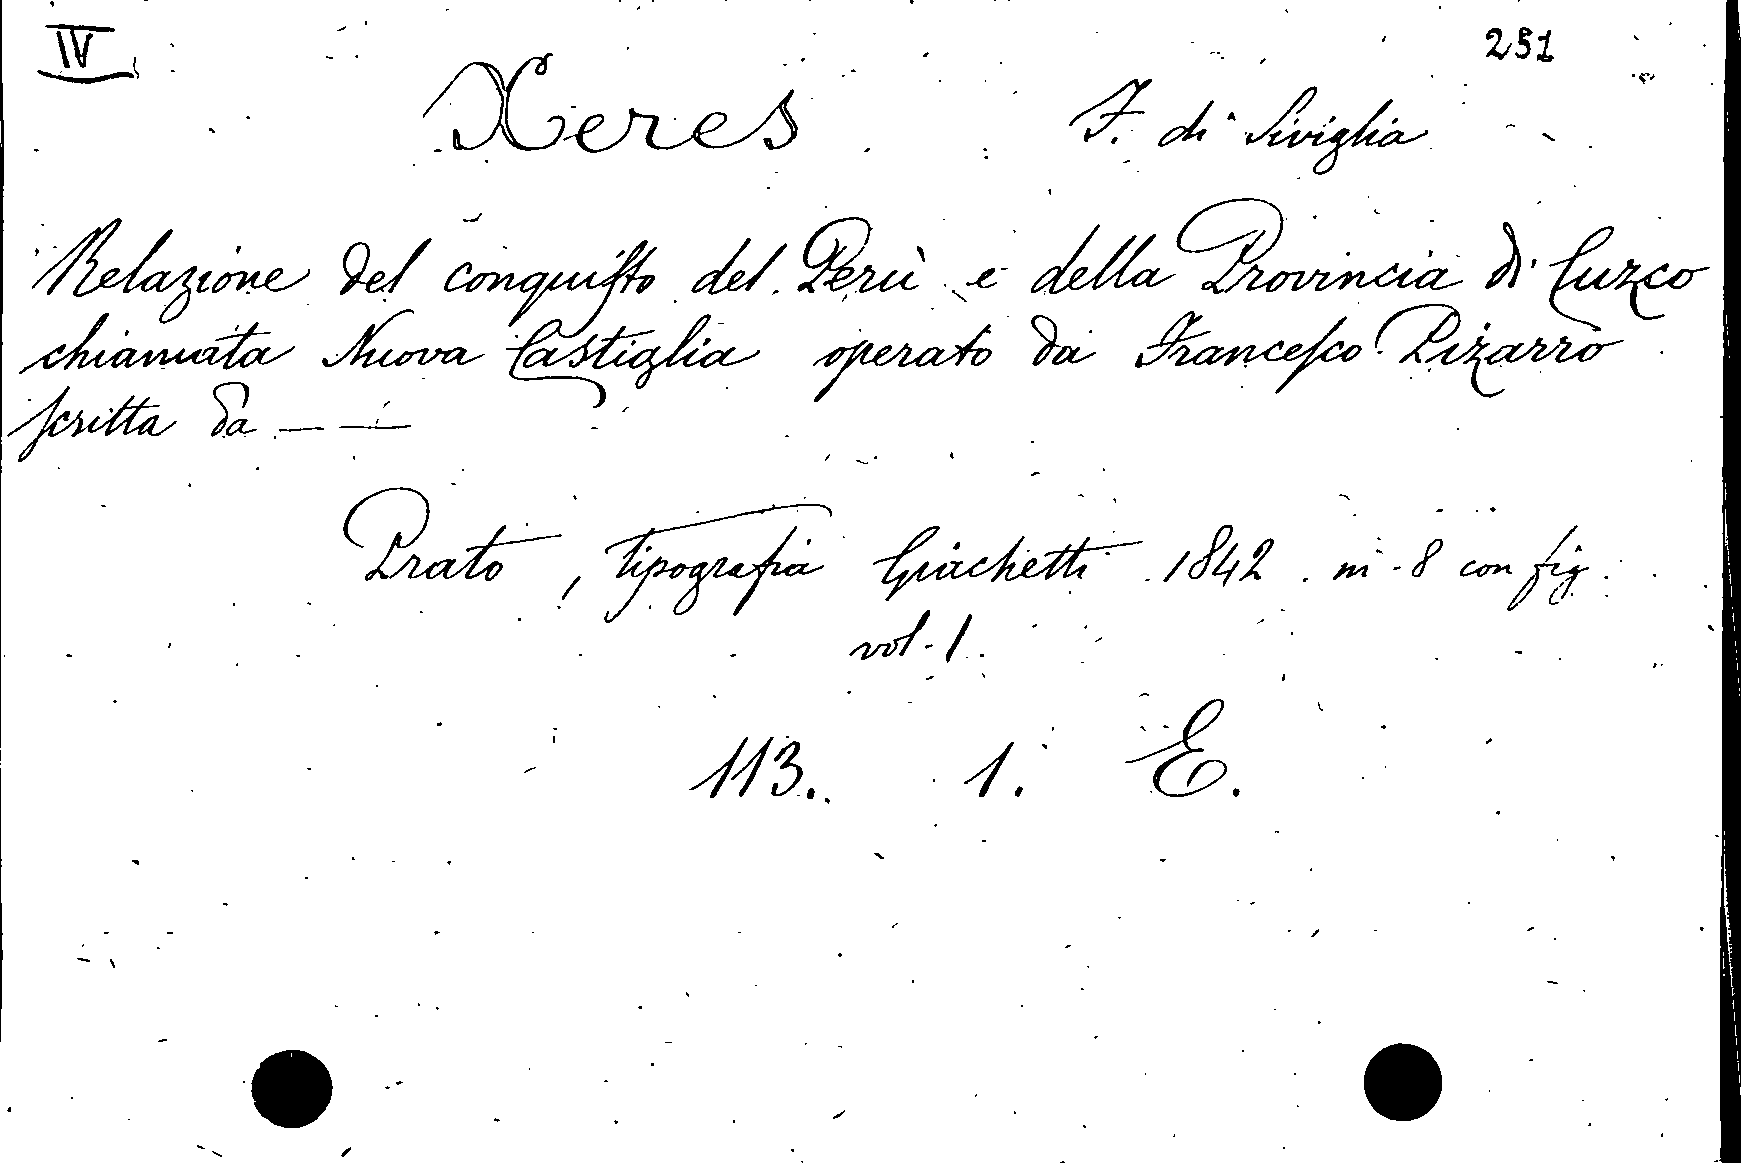 IV 251
Xeres F. di Siviglia
Relazione del conquisto del Perù e della Provincia di Cuzco
chiamata Nuova Castiglia operato da Francesco Pizarro
scritta da — —
Prato, Tipografia Giachetti 1842. in-8 con fig.
vol. 1.
113. 1. E.